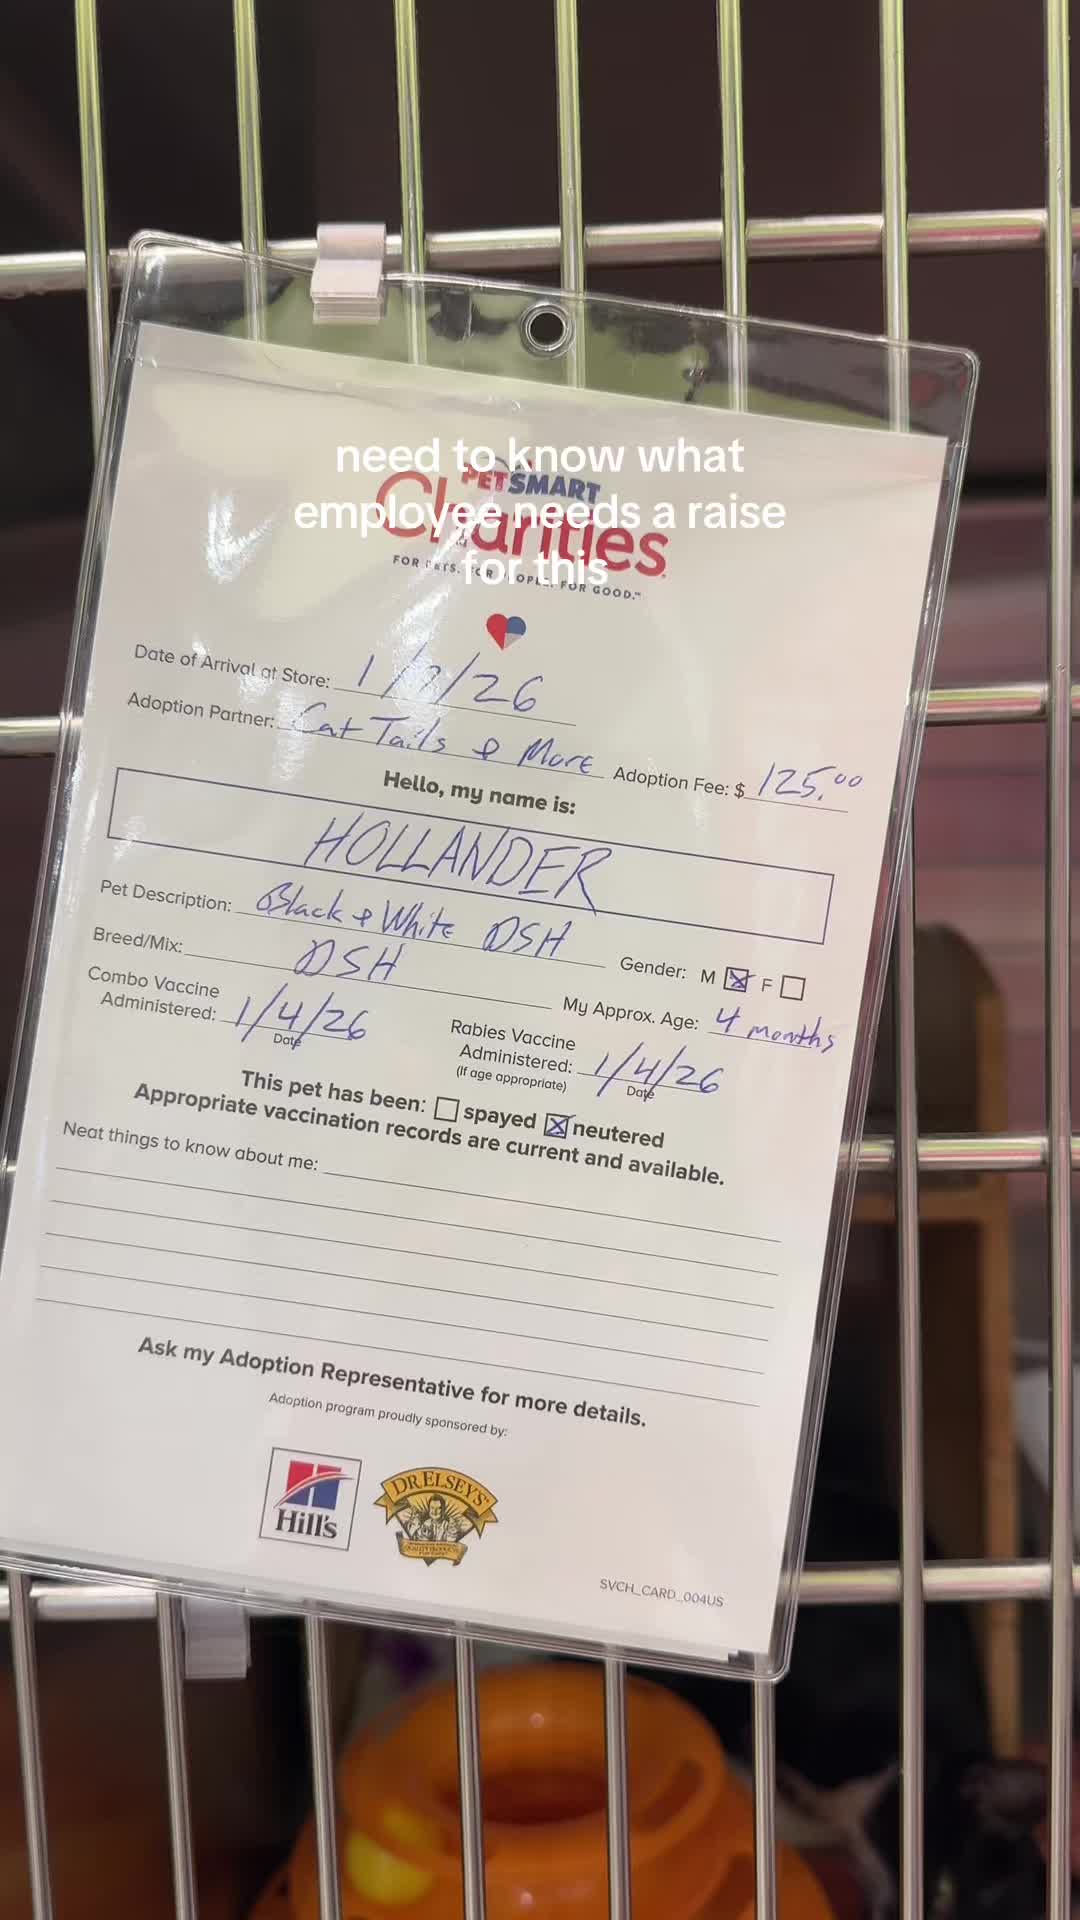 need to know what
employee needs a raise
for this
PETSMART
Charities
FOR PETS. FOR PEOPLE. FOR GOOD.™
Date of Arrival at Store: 1/7/26
Adoption Partner: Cat Tails & More Adoption Fee: $ 125.00
Hello, my name is:
HOLLANDER
Pet Description: Black & White DSH
Gender: M ☒ F ☐
Breed/Mix: DSH
My Approx. Age: 4 months
Combo Vaccine
Administered: 1/4/26
Date
Rabies Vaccine
Administered: 1/4/26
(If age appropriate)
Date
This pet has been: ☐ spayed ☒ neutered
Appropriate vaccination records are current and available.
Neat things to know about me:
Ask my Adoption Representative for more details.
Adoption program proudly sponsored by:
Hill's
DR ELSEY'S
SVCH_CARD_004US